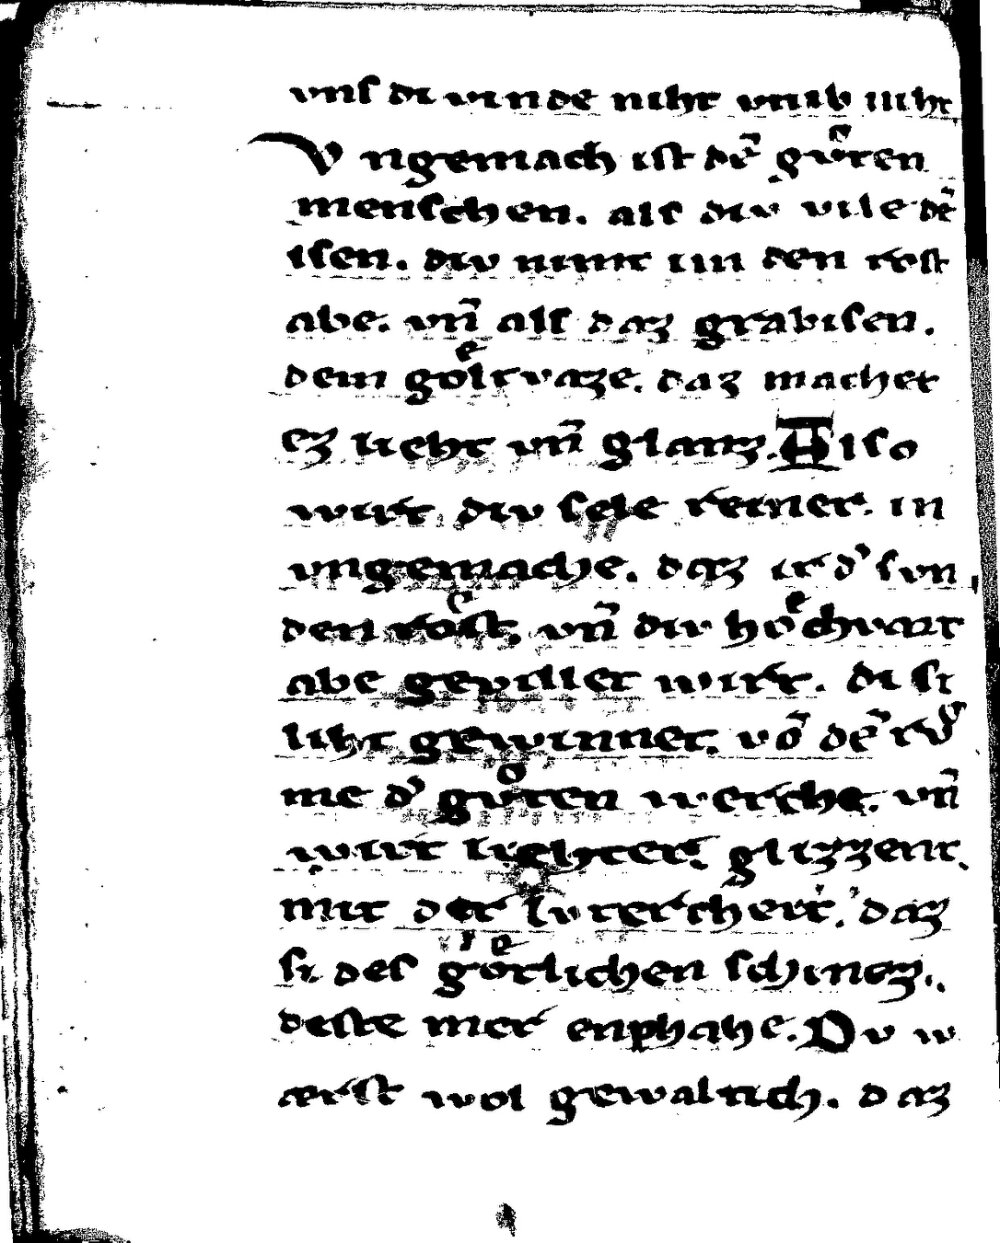 vnſ di vinde niht vnib niht
Vngemach iſt dē gvͦten
menſchen. alſ div vile dē
iſen. div nimt im den roſt
abe. vñ alſ daz grabiſen.
dem goͤltvaze. daz machet
ez lieht vñ glanz. Alſo
wirt div ſele reiner. in
vngemache. daz ir dˀ ſvn
den roſt, vñ div hoͤchvart
abe gevillet wirt. di ſi
liht gewinnet. vō dē rvͦ
me dˀ gvͦten werche. vñ
wirt liehter. glizzent.
mit der lvtercheit. daz
ſi des goͤtlichen ſchinez.
deſte mer enphahe. Dv w
ærſt wol gewaltich. daz